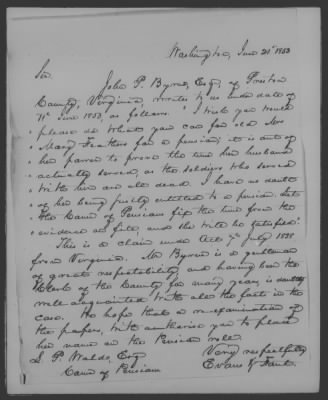 Washington, June 21st 1853
Sir
John P. Byrne, Esq, of Preston
County, Virginia, writes to us under date of
June 1853, as follows. "I wish you would
please do what you can for old Mrs
Mary Feathers for a pension; it is out of
her power to prove the time her husband
actually served, as the soldiers who served
with him are all dead. I have no doubt
of her being justly entitled to a pension. Let
the Com of Pensions fix the time from the
evidence on file, and she will be satisfied."
This is a claim under Act 7th July 1838
from Virginia. Mr Byrne is a gentleman
of great respectability, and having been the
Clerk of the County for many years, is doubtless
well acquainted with all the facts in the
case. We hope that a re-examination of
the papers, will authorise you to place
her name on the Pension roll.
L. P. Waldo, Esq Very respectfully
Com of Pensions Evans &